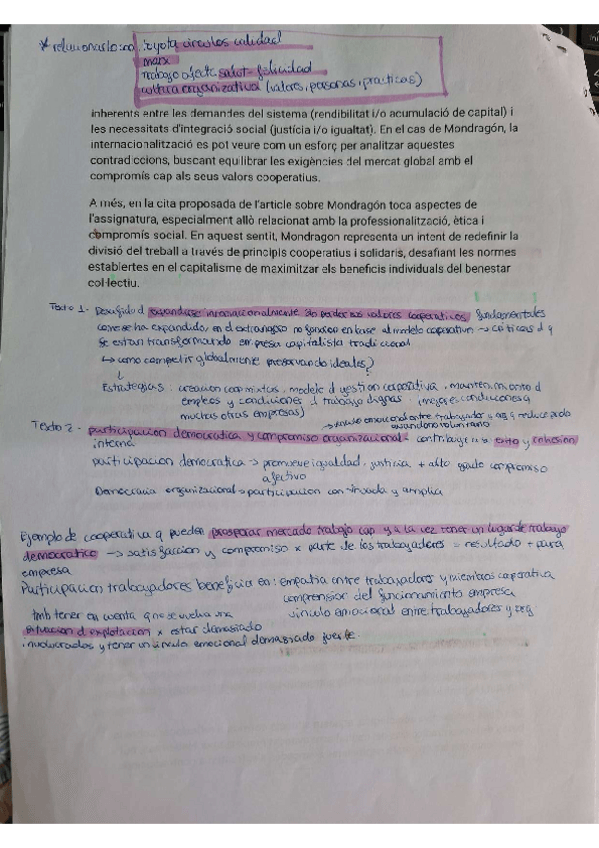 * relacionarlo con toyota circulos calidad
marx
trabajo afecta salut - felicidad
cultura organizativa (valores, personas, practicas)
inherents entre les demandes del sistema (rendibilitat i/o acumulació de capital) i
les necessitats d'integració social (justícia i/o igualtat). En el cas de Mondragón, la
internacionalització es pot veure com un esforç per analitzar aquestes
contradiccions, buscant equilibrar les exigències del mercat global amb el
compromís cap als seus valors cooperatius.
A més, en la cita proposada de l'article sobre Mondragón toca aspectes de
l'assignatura, especialment allò relacionat amb la professionalització, ètica i
compromís social. En aquest sentit, Mondragon representa un intent de redefinir la
divisió del treball a través de principis cooperatius i solidaris, desafiant les normes
establertes en el capitalisme de maximitzar els beneficis individuals del benestar
col·lectiu.
Texto 1 - expandirse internacionalmente sin perder sus valores cooperativos fundamentales
como se ha expandido, en el extranjero no funciona en base al modelo cooperativo → criticas d q
se estan transformando empresa capitalista tradicional
↳ como competir globalmente preservando ideales?
Estrategias : creacion coop mixtas, modelo d gestion corporativa, mantenimiento d
empleos y condiciones d trabajo dignas (mejores condiciones q
muchas otras empresas)
→ vinculo emocional entre trabajador y org q reduce prob
abandono voluntario
Texto 2 - participacion democratica y compromiso organizacional - contribuye a su exito y cohesion
interna
participacion democratica → promueve igualdad, justicia + alto grado compromiso
afectivo
Democracia organizacional → participacion continuada y amplia
Ejemplo de cooperativa q pueden prosperar mercado trabajo cap y a la vez tener un lugar de trabajo
democratico → satisfaccion y compromiso x parte de los trabajadores = resultado + para
empresa
Participacion trabajadores beneficia en : empatia entre trabajadores y miembros coperativa
comprension del funcionamiento empresa
vinculo emocional entre trabajadores y org
tmb tener en cuenta q no se vuelva una
situacion d explotacion x estar demasiado
involucrados y tener un vinculo emocional demasiado fuerte.